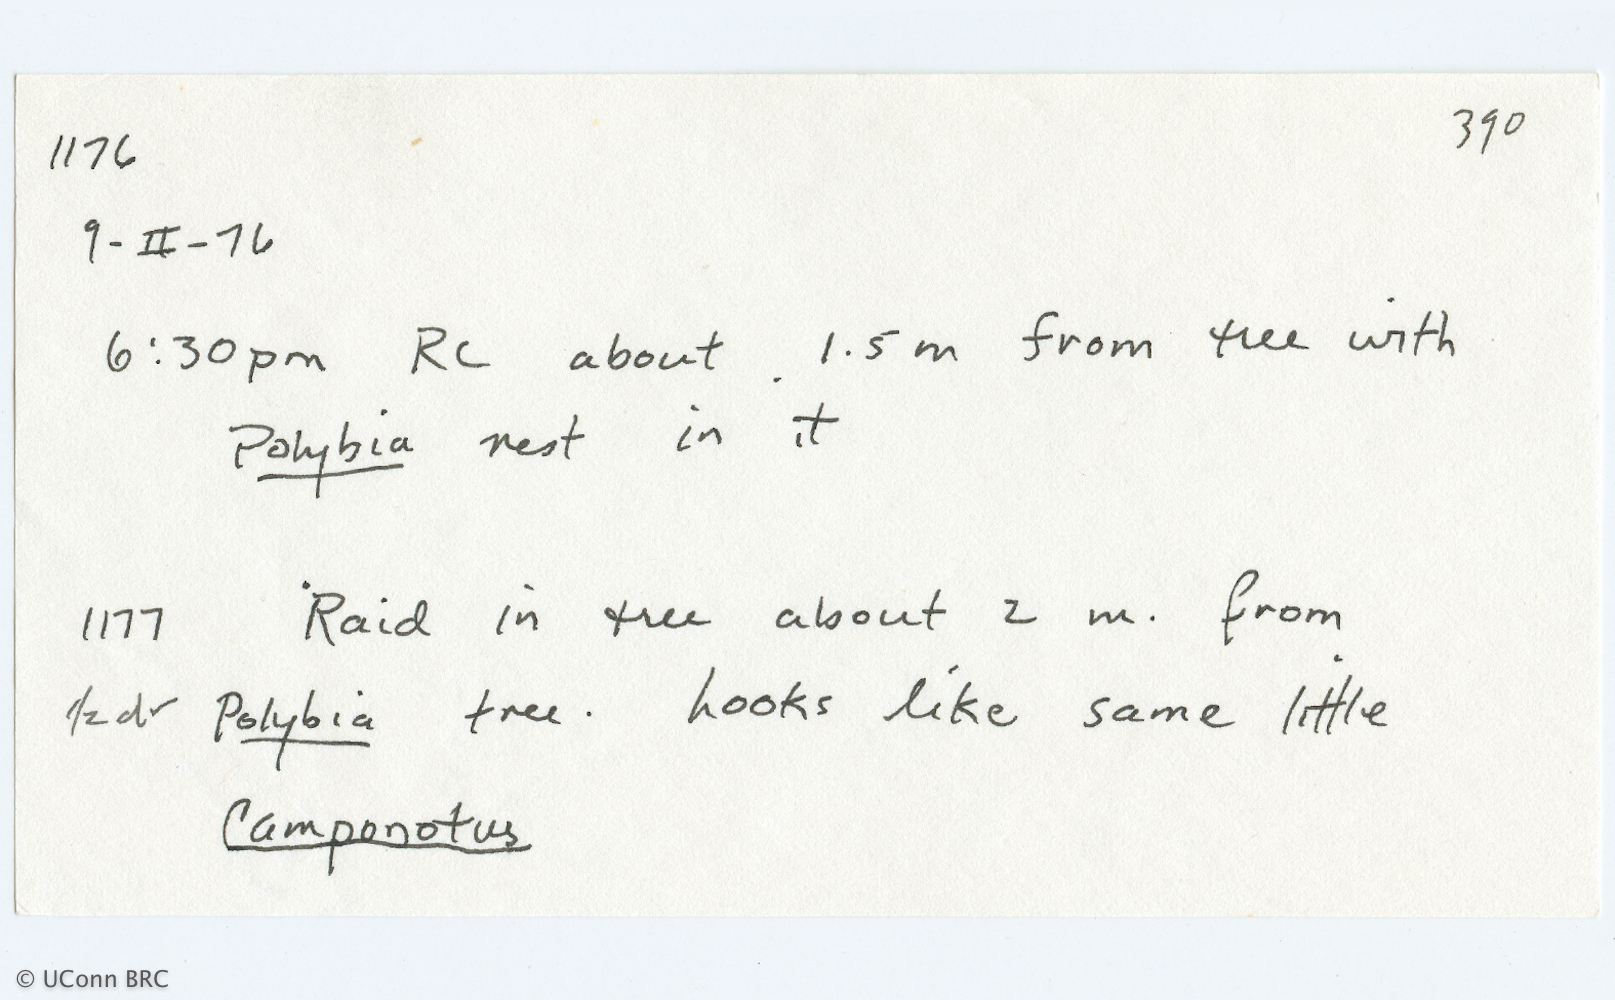 1176
390
9-II-76
6:30pm RC about 1.5 m from tree with
Polybia nest in it
1177 Raid in tree about 2 m. from
1/2 dr Polybia tree. Looks like same little
Camponotus
© UConn BRC